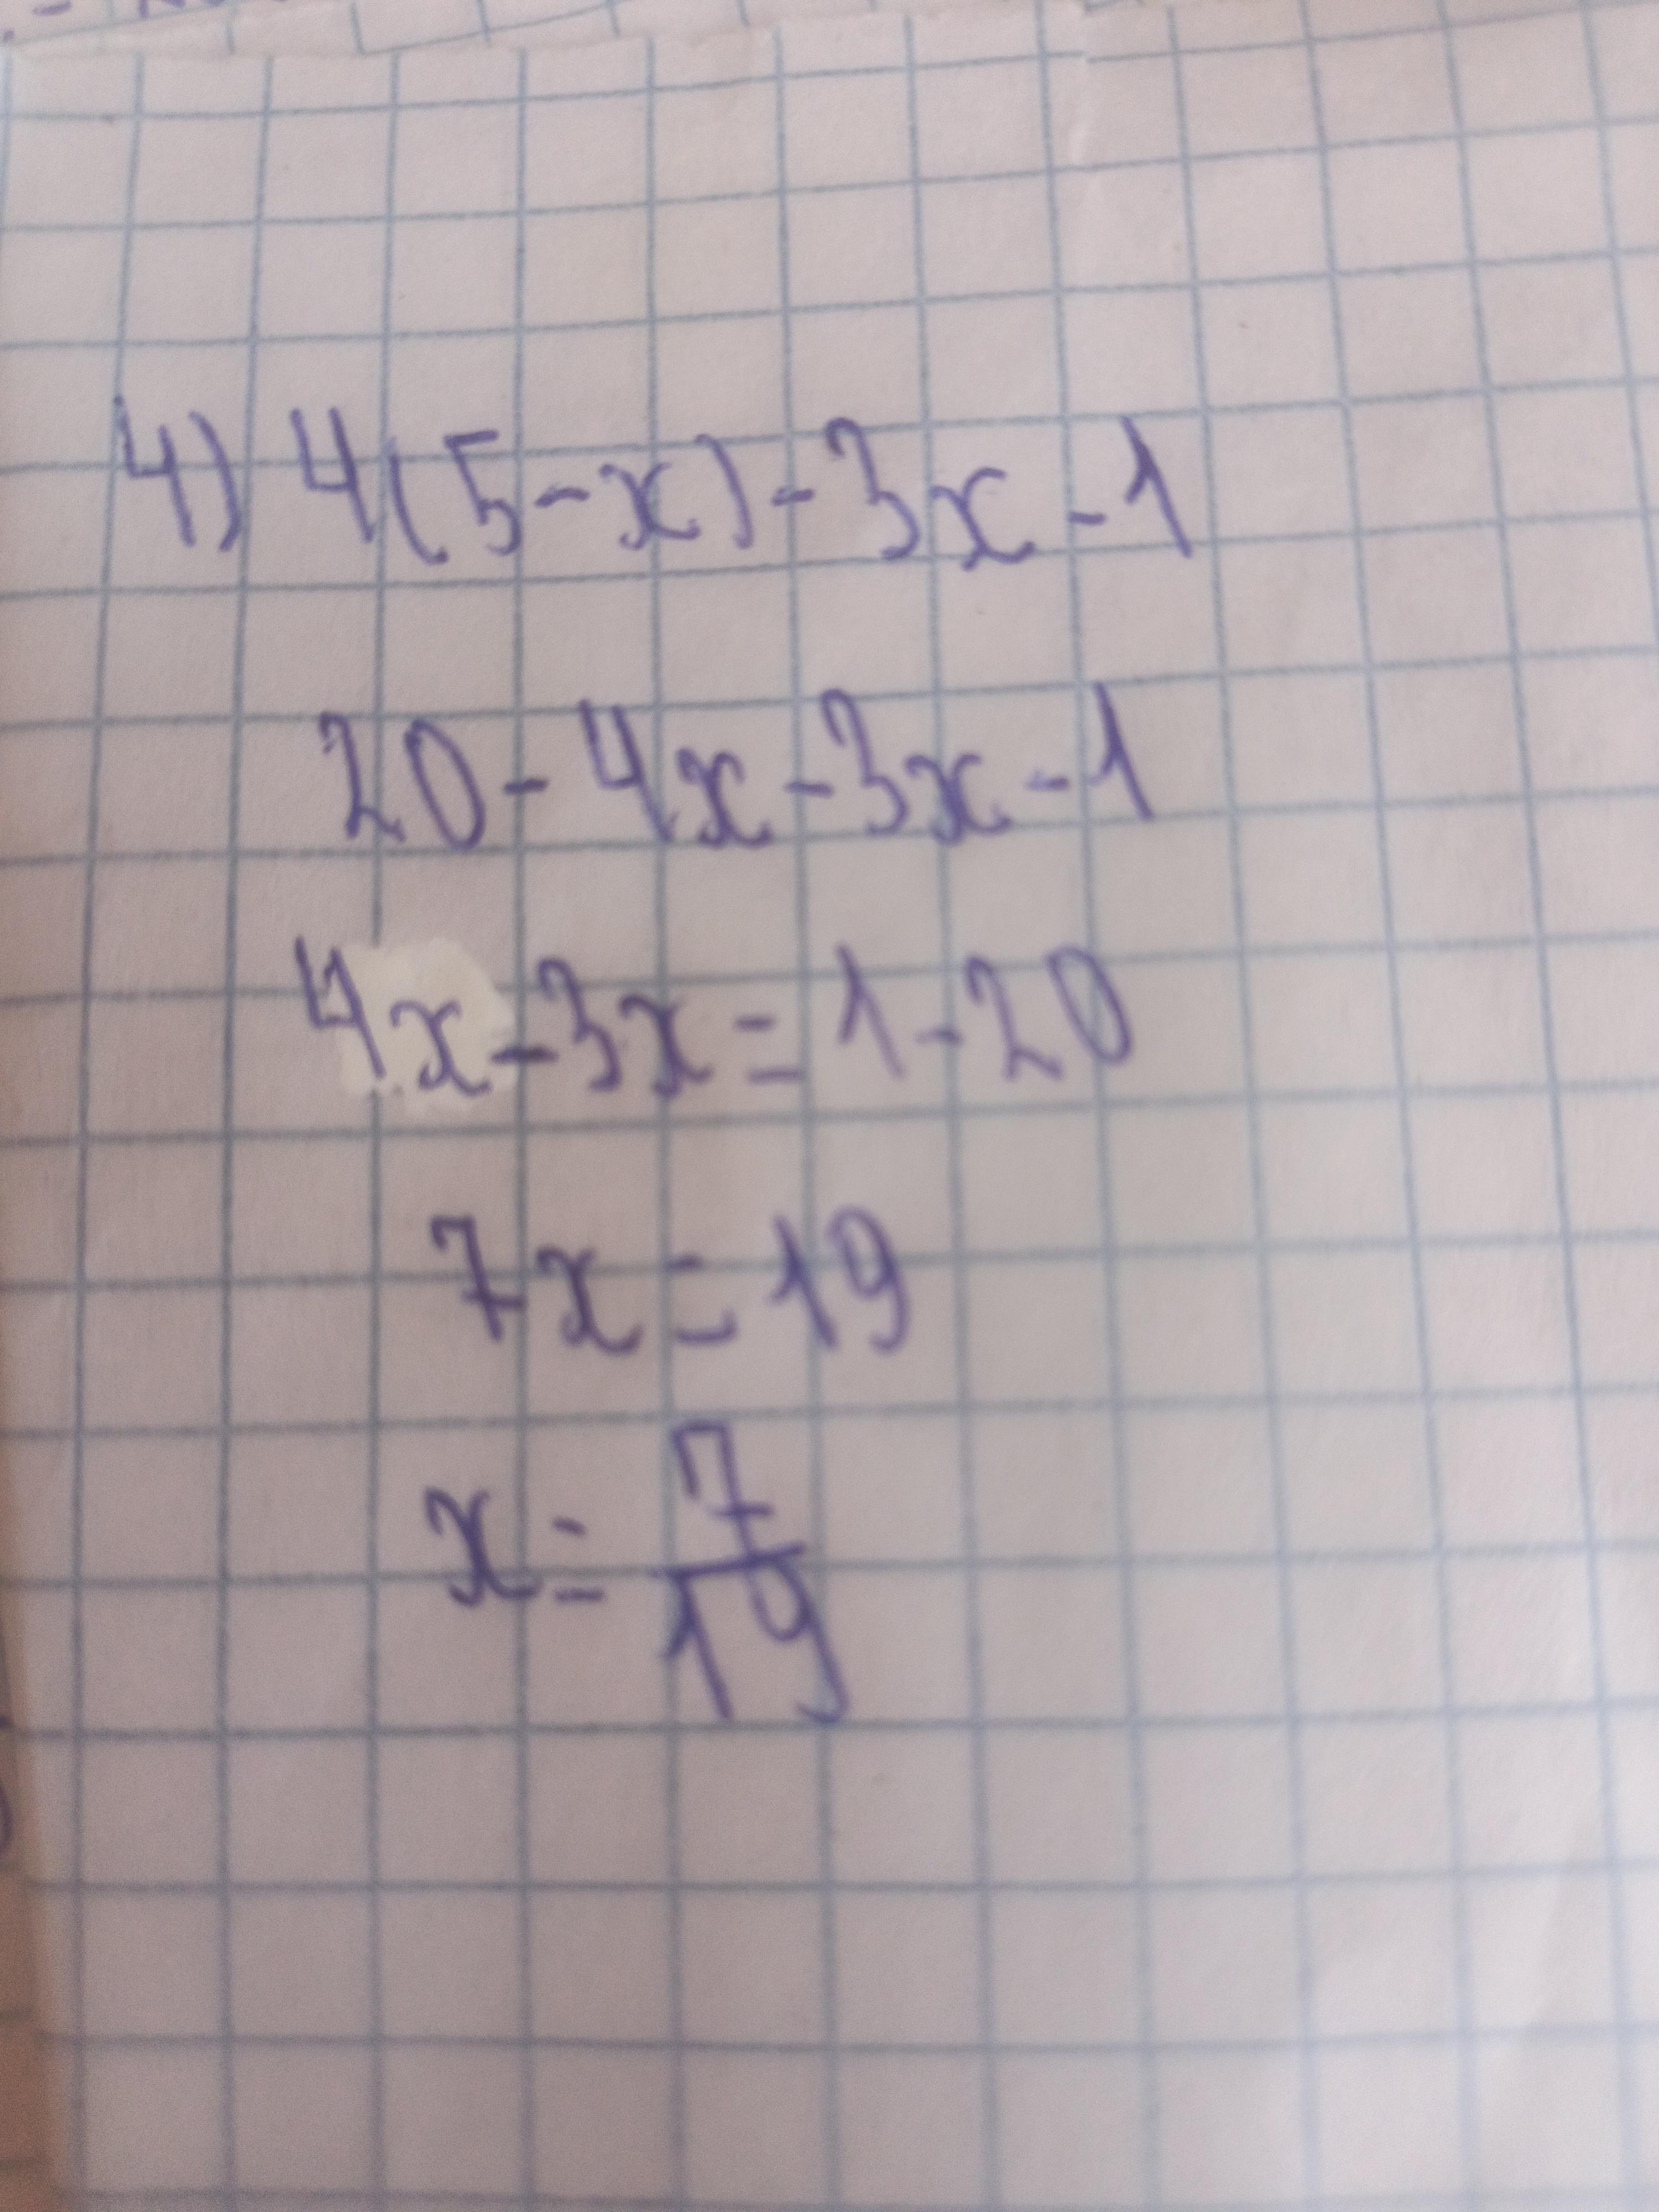 4) 4(5-x)-3x-1
20-4x-3x-1
4x-3x=1-20
7x=19
x=7/19